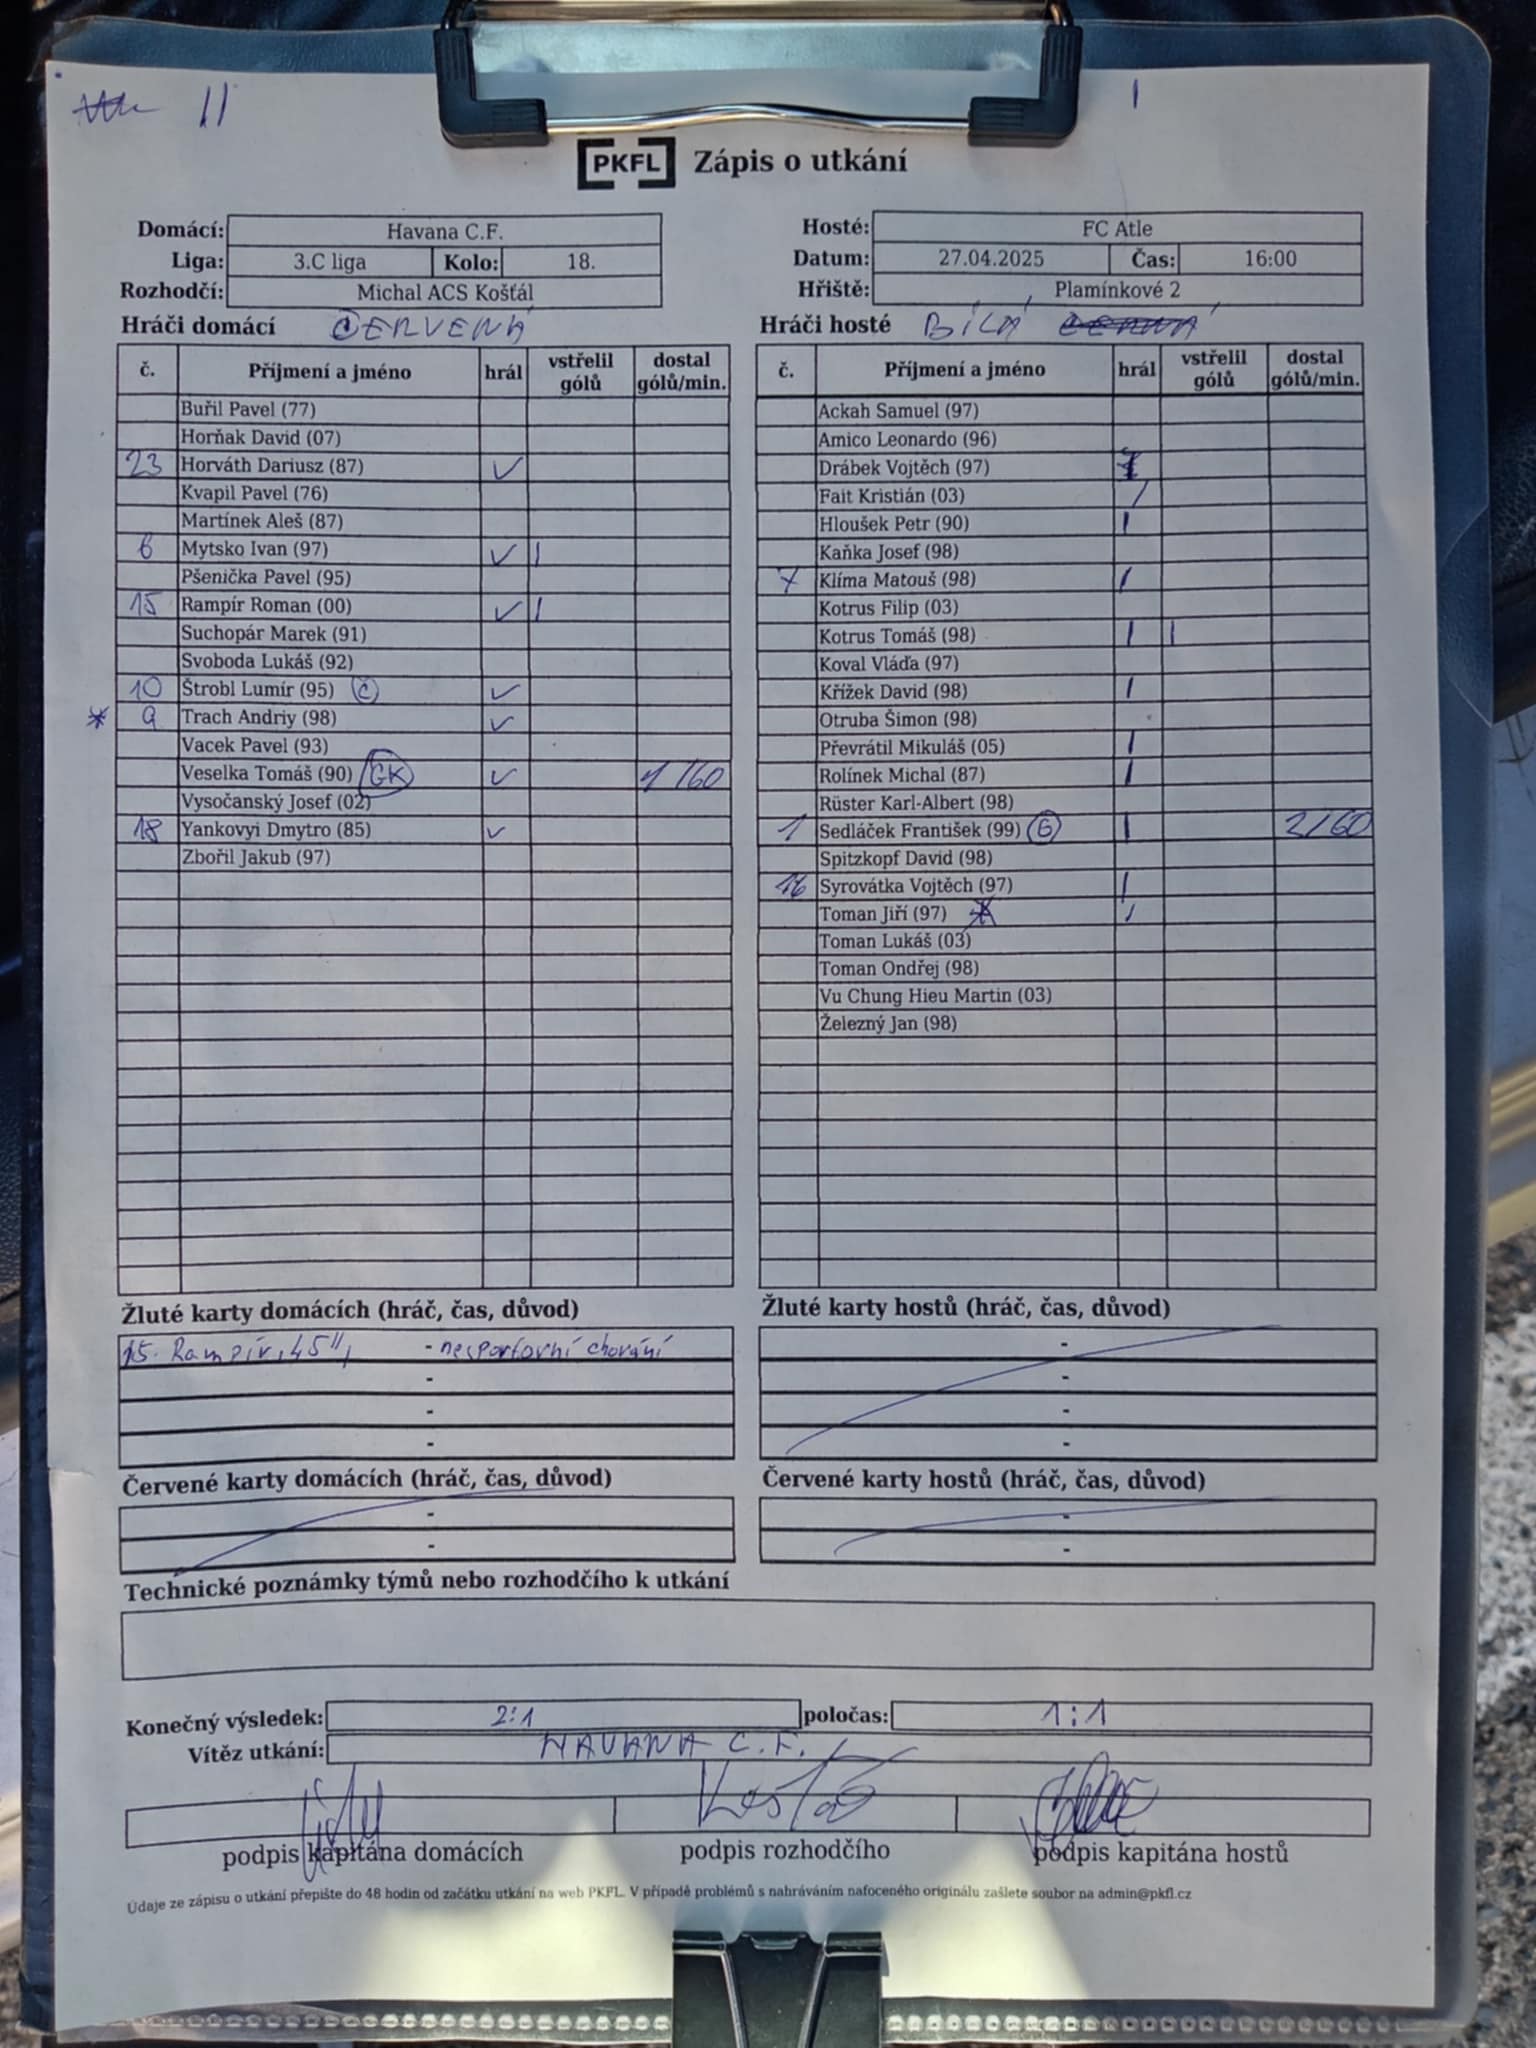 11 1
PKFL Zápis o utkání
Domácí: Havana C.F. Hosté: FC Atle
Liga: 3.C liga Kolo: 18. Datum: 27.04.2025 Čas: 16:00
Rozhodčí: Michal ACS Košťál Hřiště: Plamínkové 2
Hráči domácí ČERVENÁ
č. Příjmení a jméno hrál vstřelil gólů dostal gólů/min.
Buřil Pavel (77)
Horňak David (07)
23 Horváth Dariusz (87) ✓
Kvapil Pavel (76)
Martínek Aleš (87)
6 Mytsko Ivan (97) ✓ |
Pšenička Pavel (95)
15 Rampír Roman (00) ✓ |
Suchopár Marek (91)
Svoboda Lukáš (92)
10 Štrobl Lumír (95) C ✓
* 9 Trach Andriy (98) ✓
Vacek Pavel (93)
Veselka Tomáš (90) GK ✓ 1/60
Vysočanský Josef (02)
18 Yankovyi Dmytro (85) ✓
Zbořil Jakub (97)
Hráči hosté BÍLÁ
č. Příjmení a jméno hrál vstřelil gólů dostal gólů/min.
Ackah Samuel (97)
Amico Leonardo (96)
Drábek Vojtěch (97)
Fait Kristián (03) /
Hloušek Petr (90) |
Kaňka Josef (98)
7 Klíma Matouš (98) |
Kotrus Filip (03)
Kotrus Tomáš (98) | |
Koval Vláďa (97)
Křížek David (98) |
Otruba Šimon (98)
Převrátil Mikuláš (05) |
Rolínek Michal (87) |
Rüster Karl-Albert (98)
1 Sedláček František (99) G | 2/60
Spitzkopf David (98)
16 Syrovátka Vojtěch (97) |
Toman Jiří (97) * |
Toman Lukáš (03)
Toman Ondřej (98)
Vu Chung Hieu Martin (03)
Železný Jan (98)
Žluté karty domácích (hráč, čas, důvod)
15. Rampír, 45", - nesportovní chování
-
-
-
Žluté karty hostů (hráč, čas, důvod)
-
-
-
-
Červené karty domácích (hráč, čas, důvod)
-
-
Červené karty hostů (hráč, čas, důvod)
-
-
Technické poznámky týmů nebo rozhodčího k utkání
Konečný výsledek: 2:1 poločas: 1:1
Vítěz utkání: HAVANA C.F.
podpis kapitána domácích podpis rozhodčího podpis kapitána hostů
Údaje ze zápisu o utkání přepište do 48 hodin od začátku utkání na web PKFL. V případě problémů s nahráváním nafoceného originálu zašlete soubor na admin@pkfl.cz